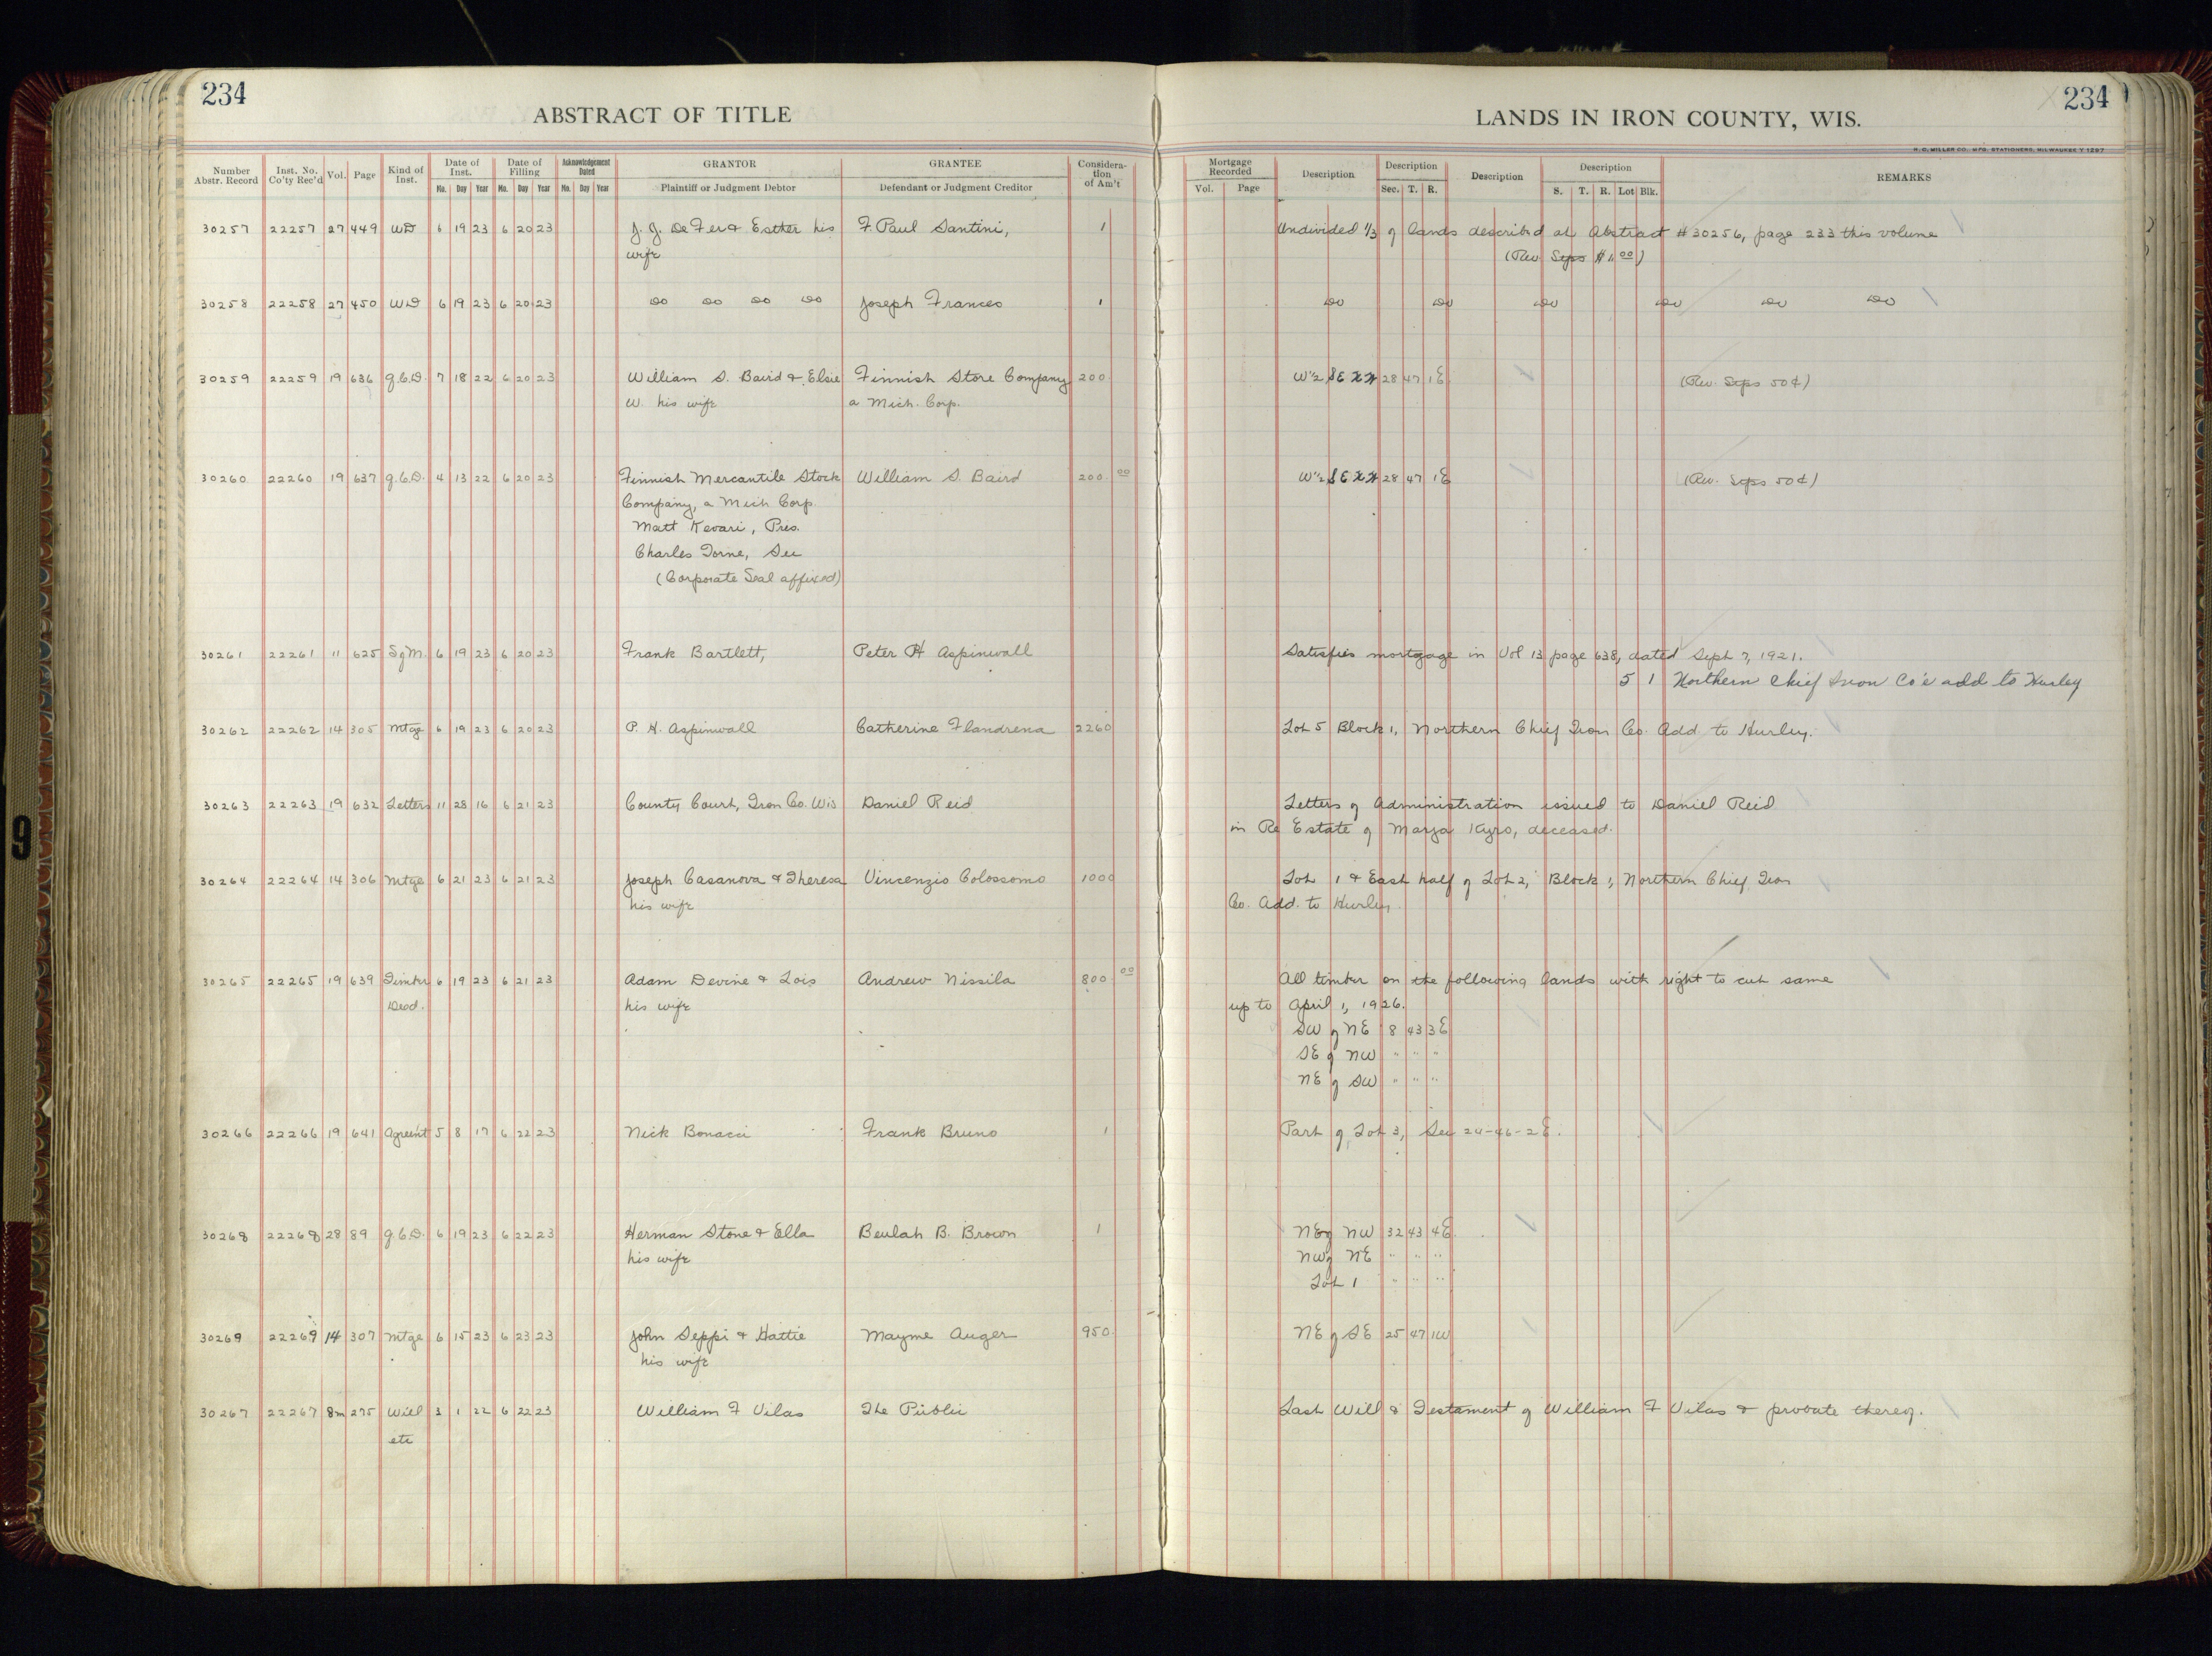 234
ABSTRACT OF TITLE
Number Abstr. Record Inst. No. Co'ty Rec'd Vol. Page Kind of Inst. Date of Inst. No. Day Year Date of Filling No. Day Year Acknowledgement Dated No. Day Year GRANTOR Plaintiff or Judgment Debtor GRANTEE Defendant or Judgment Creditor Considera-tion of Am't
LANDS IN IRON COUNTY, WIS.
234
H. C. MILLER CO. MFG. STATIONERS, MILWAUKEE
Mortgage Recorded Vol. Page Description Description Sec. T. R. Description Description S. T. R. Lot Blk. REMARKS
30257 22257 27 449 WD 6 19 23 6 20 23 J. J. De Fer & Esther his F. Paul Santini, 1 Undivided 1/3 of lands described at Abstract #30256, page 233 this volume
wife (Rev. Stps $1.00)
30258 22258 27 450 WD 6 19 23 6 20 23 Do Do Do Do Joseph Frances 1 Do Do Do Do Do Do
30259 22259 19 636 q.C.D. 7 18 22 6 20 23 William S. Baird & Elsie Finnish Store Company 200 W½ SE 28 47 1E (Rev. Stps 50¢)
W. his wife a Mich. Corp.
30260 22260 19 637 q.C.D. 4 13 22 6 20 23 Finnish Mercantile Stock William S. Baird 200 00 W½ SE 28 47 1E (Rev. Stps 50¢)
Company, a Mich Corp.
Matt Kevari, Pres.
Charles Torne, Sec
(Corporate Seal affixed)
30261 22261 11 625 S of M. 6 19 23 6 20 23 Frank Bartlett, Peter H Aspinwall Satisfies mortgage in Vol 13 page 638, dated Sept 7, 1921.
5 1 Northern Chief Iron Co's add to Hurley
30262 22262 14 305 Mtge 6 19 23 6 20 23 P. H. Aspinwall Catherine Flandrena 2260 Lot 5 Block 1, Northern Chief Iron Co. Add. to Hurley.
30263 22263 19 632 Letters 11 28 16 6 21 23 County Court, Iron Co. Wis Daniel Reid Letters of Administration issued to Daniel Reid
in Re Estate of Marja Kyro, deceased.
30264 22264 14 306 Mtge 6 21 23 6 21 23 Joseph Casanova & Theresa Vincenzio Colossomo 1000 Lot 1 & East half of Lot 2, Block 1, Northern Chief Iron
his wife Co. Add. to Hurley.
30265 22265 19 639 Timber 6 19 23 6 21 23 Adam Devine & Lois Andrew Nissila 800 00 All timber on the following lands with right to cut same
Deed. his wife up to April 1, 1926.
SW of NE 8 43 3E
SE of NW " " "
NE of SW " " "
30266 22266 19 641 Agreemt 5 8 17 6 22 23 Nick Bonacci Frank Bruno 1 Part of Lot 3, Sec 24-46-2E.
30268 22268 28 89 q.C.D. 6 19 23 6 22 23 Herman Stone & Ella Beulah B. Brown 1 NE of NW 32 43 4E
his wife NW of NE " " "
Lot 1 " " "
30269 22269 14 307 Mtge 6 15 23 6 23 23 John Seppi & Hattie Mayme Auger 950 NE of SE 25 47 1W
his wife
30267 22267 8m 275 Will 3 1 22 6 22 23 William F Vilas The Public Last Will & Testament of William F Vilas & probate thereof.
etc
9